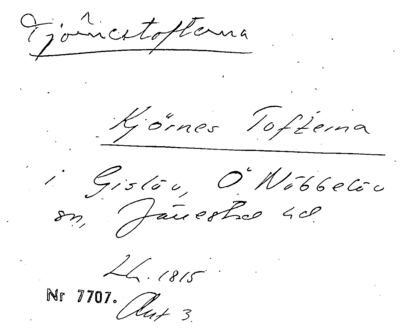 Tjörnestofterna
Kjörnes Tofterna
i Gislöv, Ö Nöbbelöv
sn, Järrestad hd
Lh. 1815
Nr 7707. Akt 3.